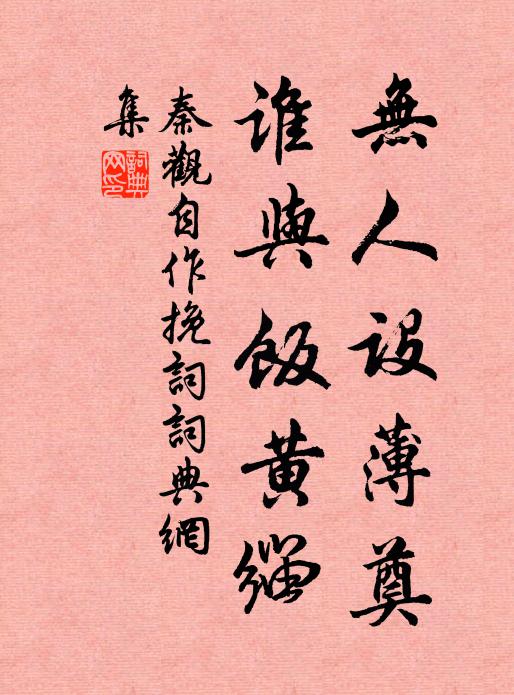 無人設薄奠
誰與飯黃緇
秦觀自作挽詞詞典網
集
詞典網印